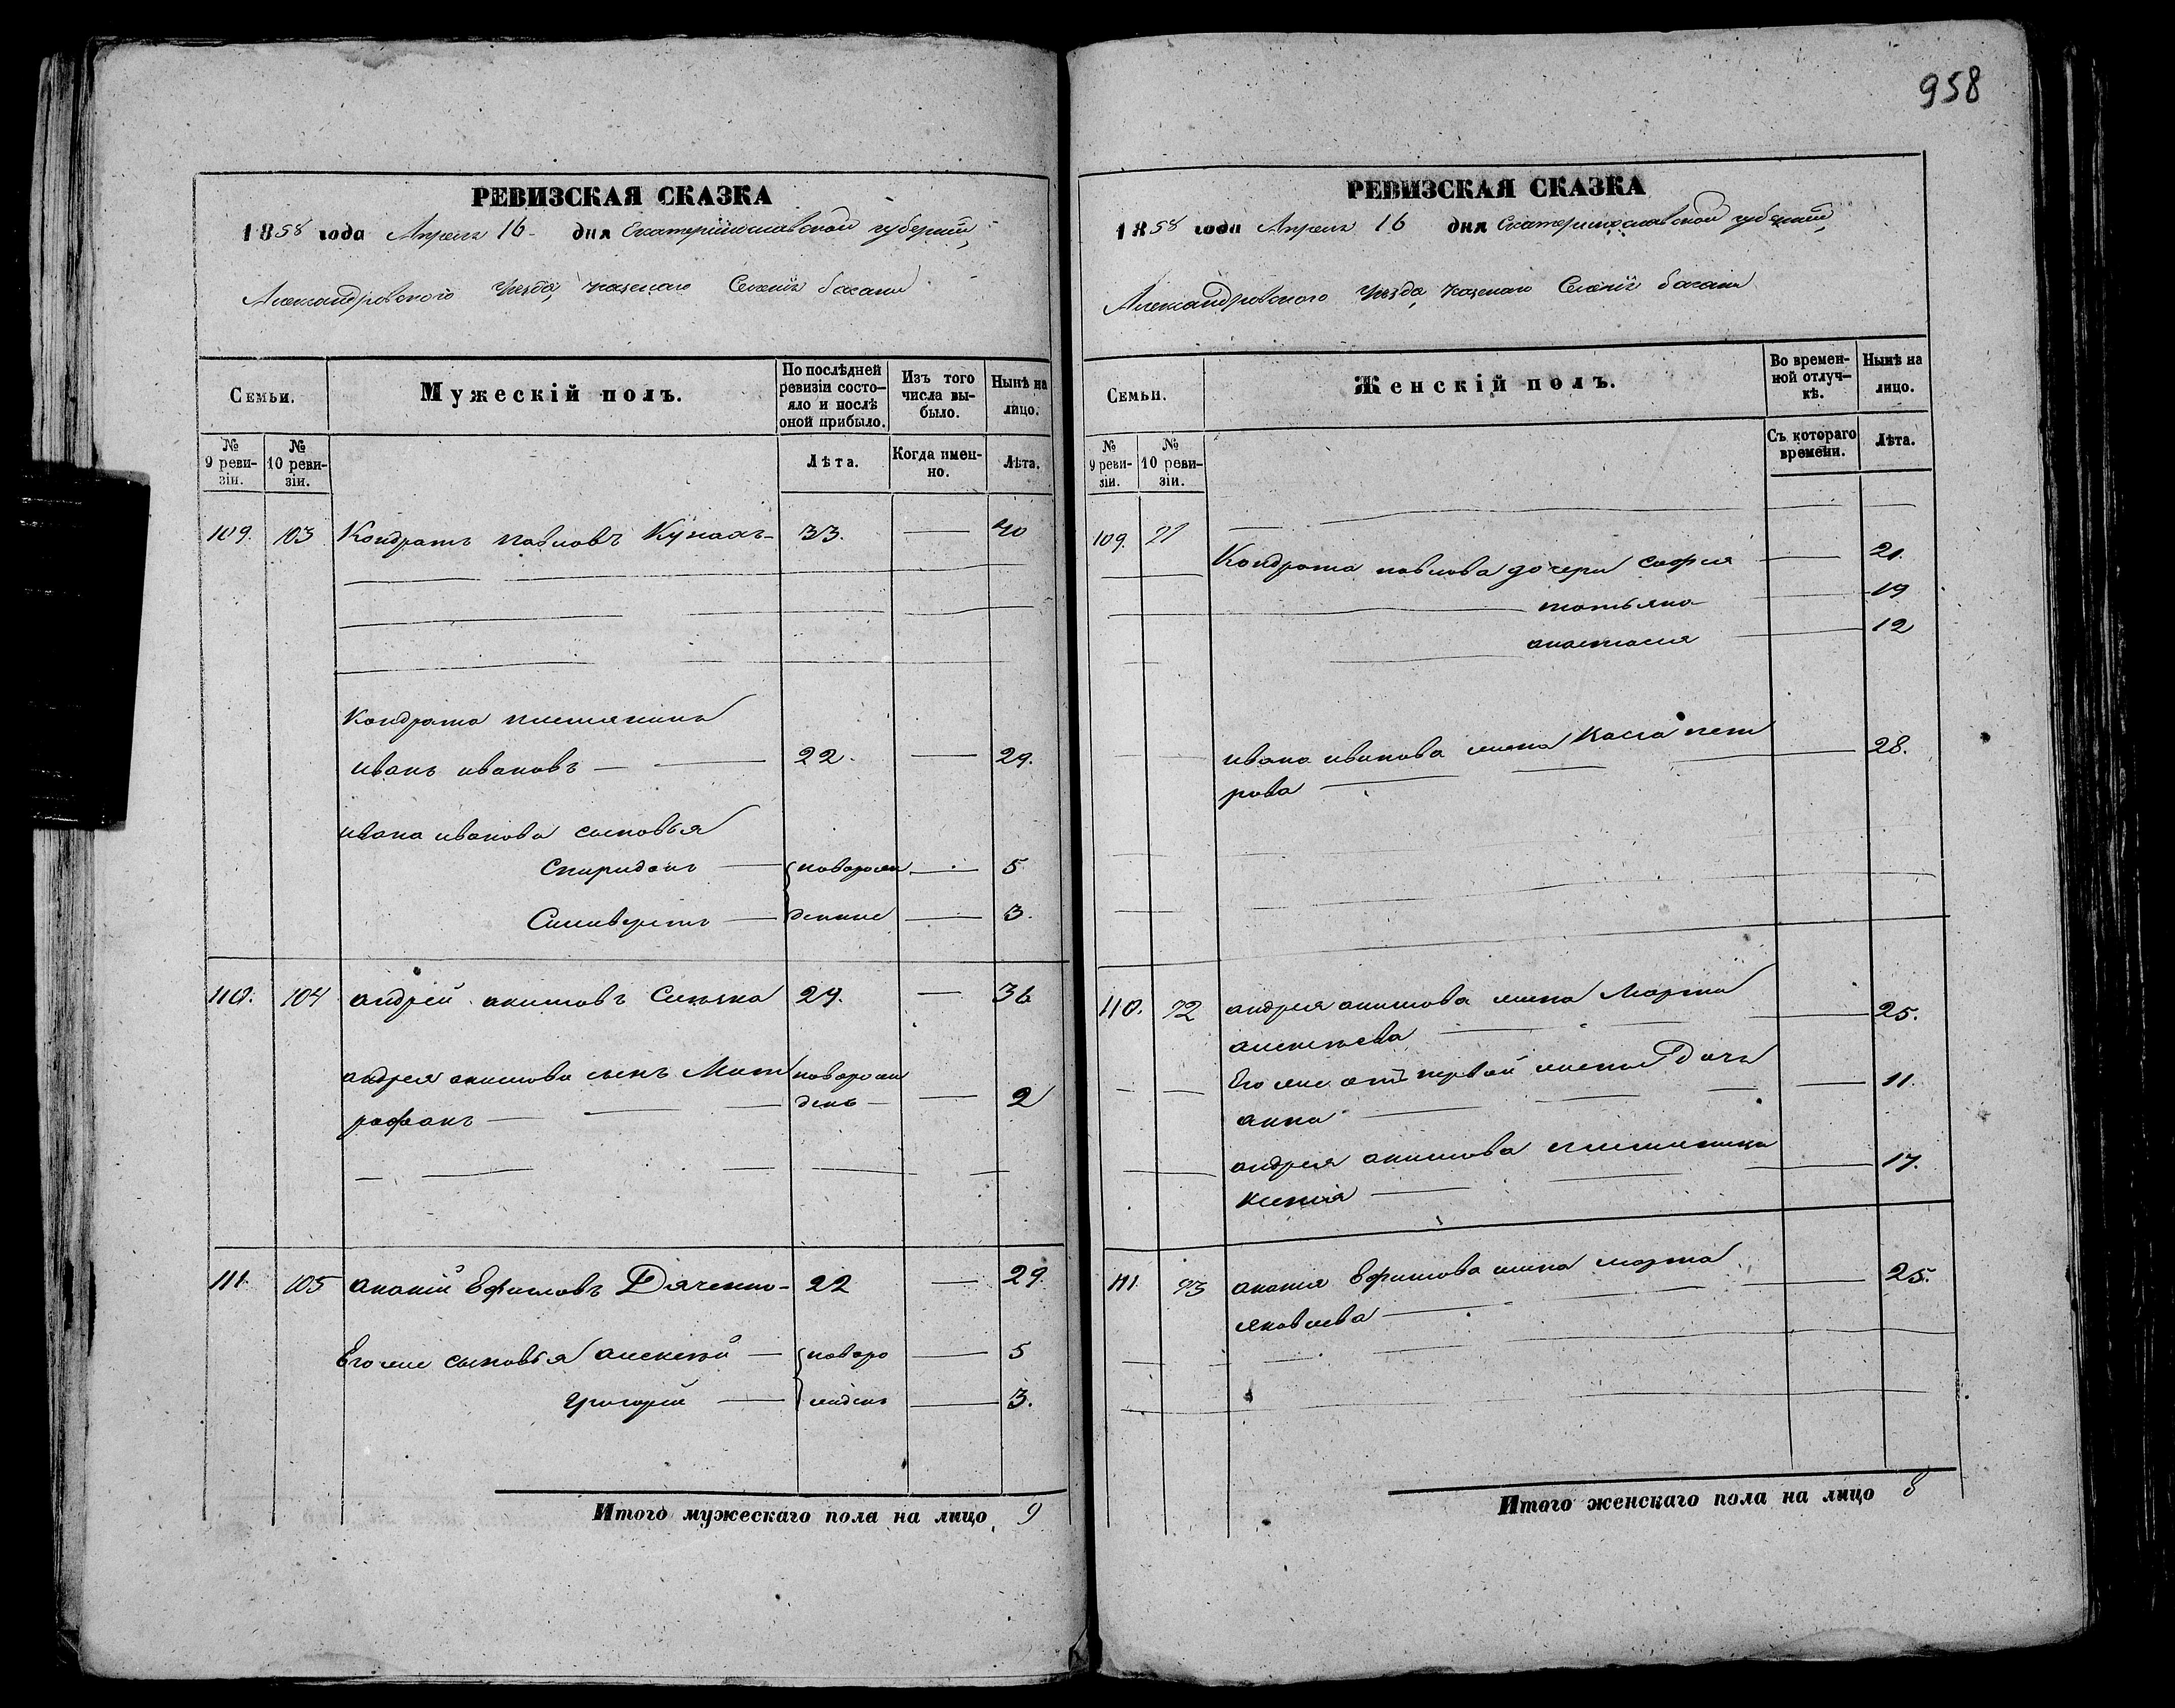 958
РЕВИЗСКАЯ СКАЗКА
1858 года Апреля 16 дня Екатеринославской губерніи,
Александровского Уезда, казенаго Селенія
Семьи.
Мужескій полъ.
По послѣдней ревизіи состояло и послѣ оной прибыло.
Изъ того числа выбыло.
Нынѣ на лицо.
№ 9 ревизіи.
№ 10 ревизіи.
Лѣта.
Когда именно.
Лѣта.
109. 103 Кондратъ павловъ 33. — 40
Кондрата племянникъ
иванъ ивановъ — 22. — 29.
ивана иванова сыновья
Спиридонъ — новорож — 5
— денные — 3.
110. 104 андрей акимовъ 29. — 36
андрея акимова сынъ Мит новорож
рофанъ — день — 2
111. 105 ананій Ефимовъ Дяченко - 22 — 29.
Его же сыновья алексей — новоро — 5
григорій — жденъ — 3.
Итого мужескаго пола на лицо 9
РЕВИЗСКАЯ СКАЗКА
1858 года Апреля 16 дня Екатеринославской губерніи,
Александровского Уезда, казенаго Селенія
Семьи.
Женскій полъ.
Во временной отлучкѣ.
Нынѣ на лицо.
№ 9 ревизіи.
№ 10 ревизіи.
Съ котораго времени.
Лѣта.
109. 91
Кондрата павлова дочери софия — 21.
татьяна — 19
анастасия — 12
ивана иванова жена пет
рова — 28.
110. 92 андрея акимова жена Марта
алексѣева — 25.
Его же отъ первой жены Дочь
анна — 11.
андрея акимова племяница
ксения — 17.
111. 93 анания Ефимова жена марта
яковлева — 25.
Итого женскаго пола на лицо 8